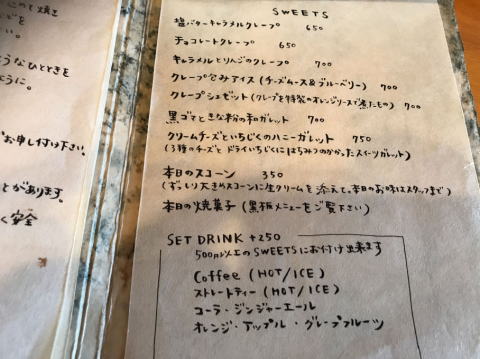 このて焼き
い。
うなひとときを
ように。
お申し付け下さい。
とがあります。
く安全
SWEETS
塩バターキャラメルクレープ 650
チョコレートクレープ 650
キャラメルとりんごのクレープ 700
クレープ包みアイス(チーズムース&ブルーベリー) 700
クレープシュゼット(クレープを特製のオレンジソースで煮たもの) 700
黒ゴマときな粉の和ガレット 700
クリームチーズといちじくのハニーガレット 750
(3種のチーズとドライいちじくにはちみつのかかったスイーツガレット)
本日のスコーン 350
(ずっしり大きめスコーンに生クリームを添えて。本日のお味はスタッフまで)
本日の焼菓子(黒板メニューをご覧下さい)
SET DRINK +250
500円以上のSWEETSにお付け出来ます
Coffee (HOT/ICE)
ストレートティー(HOT/ICE)
コーラ・ジンジャーエール
オレンジ・アップル・グレープフルーツ